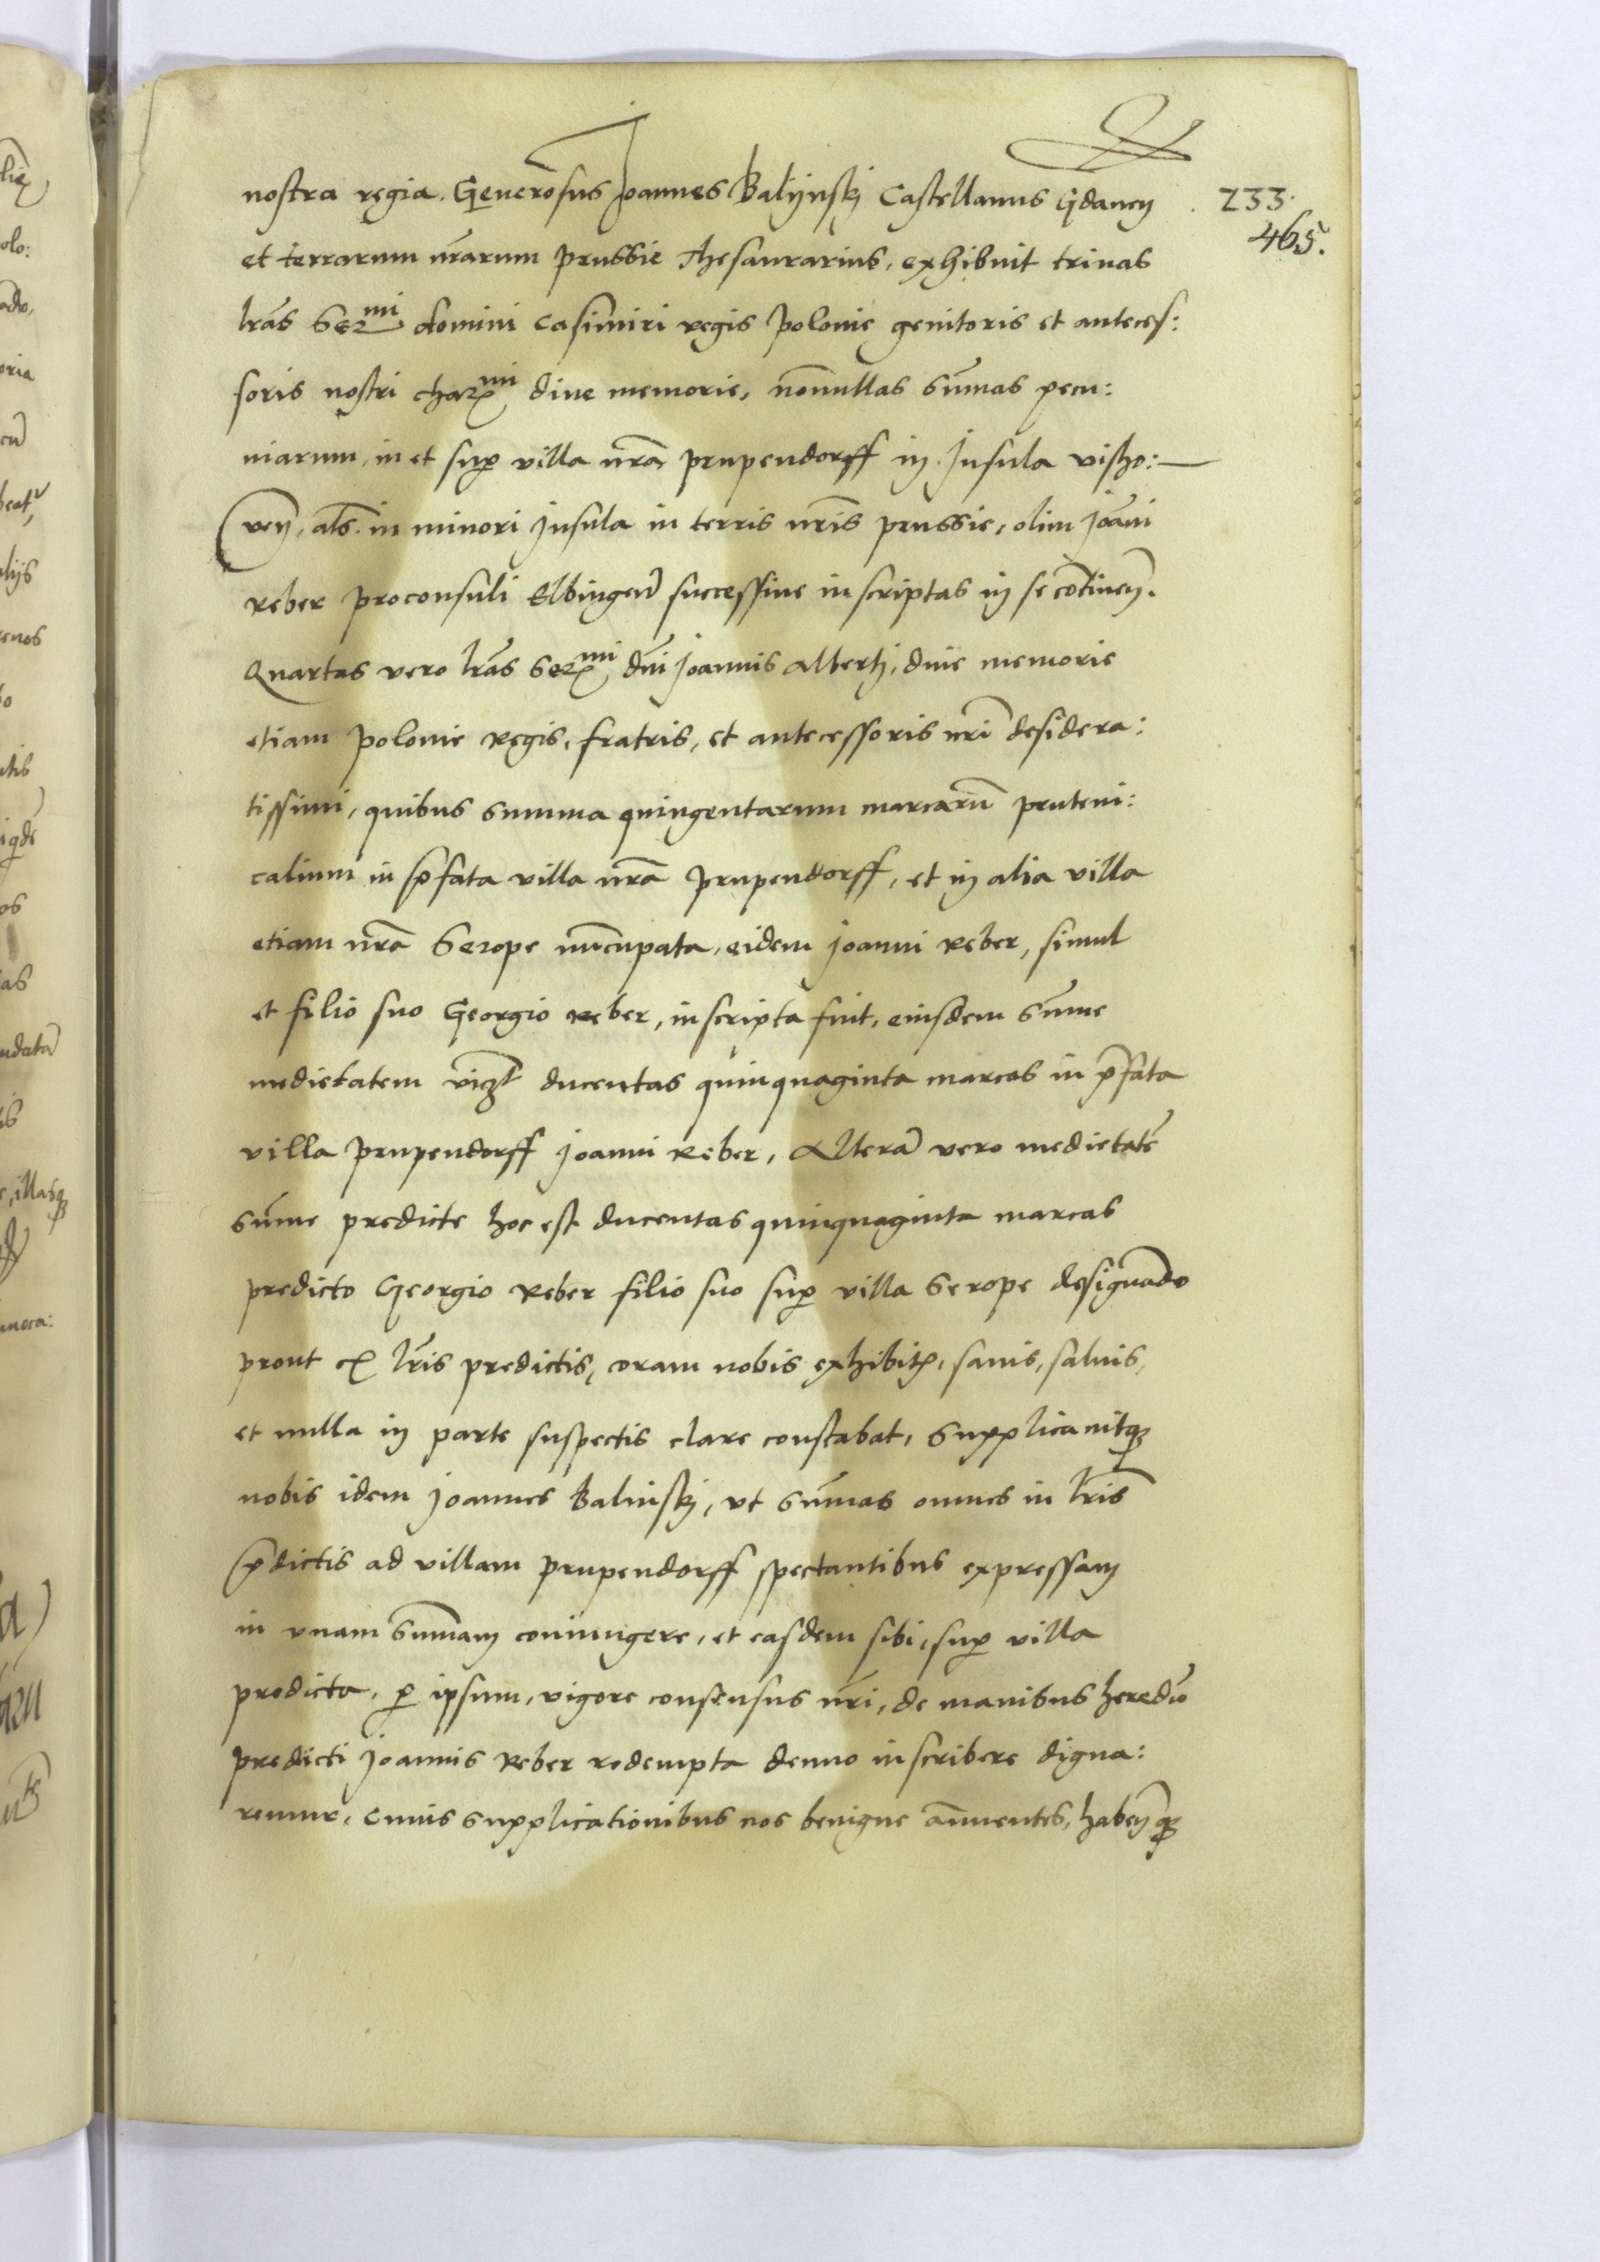 nostra regia. Generosus Joannes Balijnski Castellanus Gdaneñ
233.
465.
et terrarum nr̄arum prussie thesaurarius, exhibuit trinas
lrās Ser^mi domini Casimiri regis polonie genitoris et anteces:
soris nostri char^mi dive memorie, nōnnullas sūmas pecu:
niarum, in et sup villa nrā prupendorff in Insula visho:
ven, als in minori Insula in terris nrīs prussie, olim joāni
Reber proconsuli Elbingeñ successive inscriptas in se cōtineñ.
Quartas vero lrās Ser^mi dn̄i Joannis Alberti, dive memorie
etiam polonie Regis, fratris, et antecessoris nrī desidera:
tissimi, quibus summa quingentarum marcarū pruteni:
calium in p̄fata villa nrā prupendorff, et in alia villa
etiam nrā Serope nūcupata, eidem joanni Reber, simul
et filio suo Georgio Reber, inscripta fuit, eiusdem sūme
medietatem viczt ducentas quinquaginta marcas in p̄fata
villa prupendorff joanni Reber, Alterā vero medietatē
sūme predicte hoc est ducentas quinquaginta marcas
predicto Georgio Reber filio suo sup villa Serope designādo
prout ex lrīs predictis, coram nobis exhibitis, sanis, salvis,
et nulla in parte suspectis clare constabat, Supplicavitq
nobis idem joannes Balinski, vt sūmas omnes in lrīs
p̄dictis ad villam prupendorff spectantibus expressam
in vnam sūmam coniungere, et easdem sibi, sup villa
predicta, p ipsum, vigore consensus nrī, de manibus heredū
predicti Joannis Reber redempta denuo inscribere digna:
remur, Cuius supplicationibus nos benigne an̄uentes, habeñq